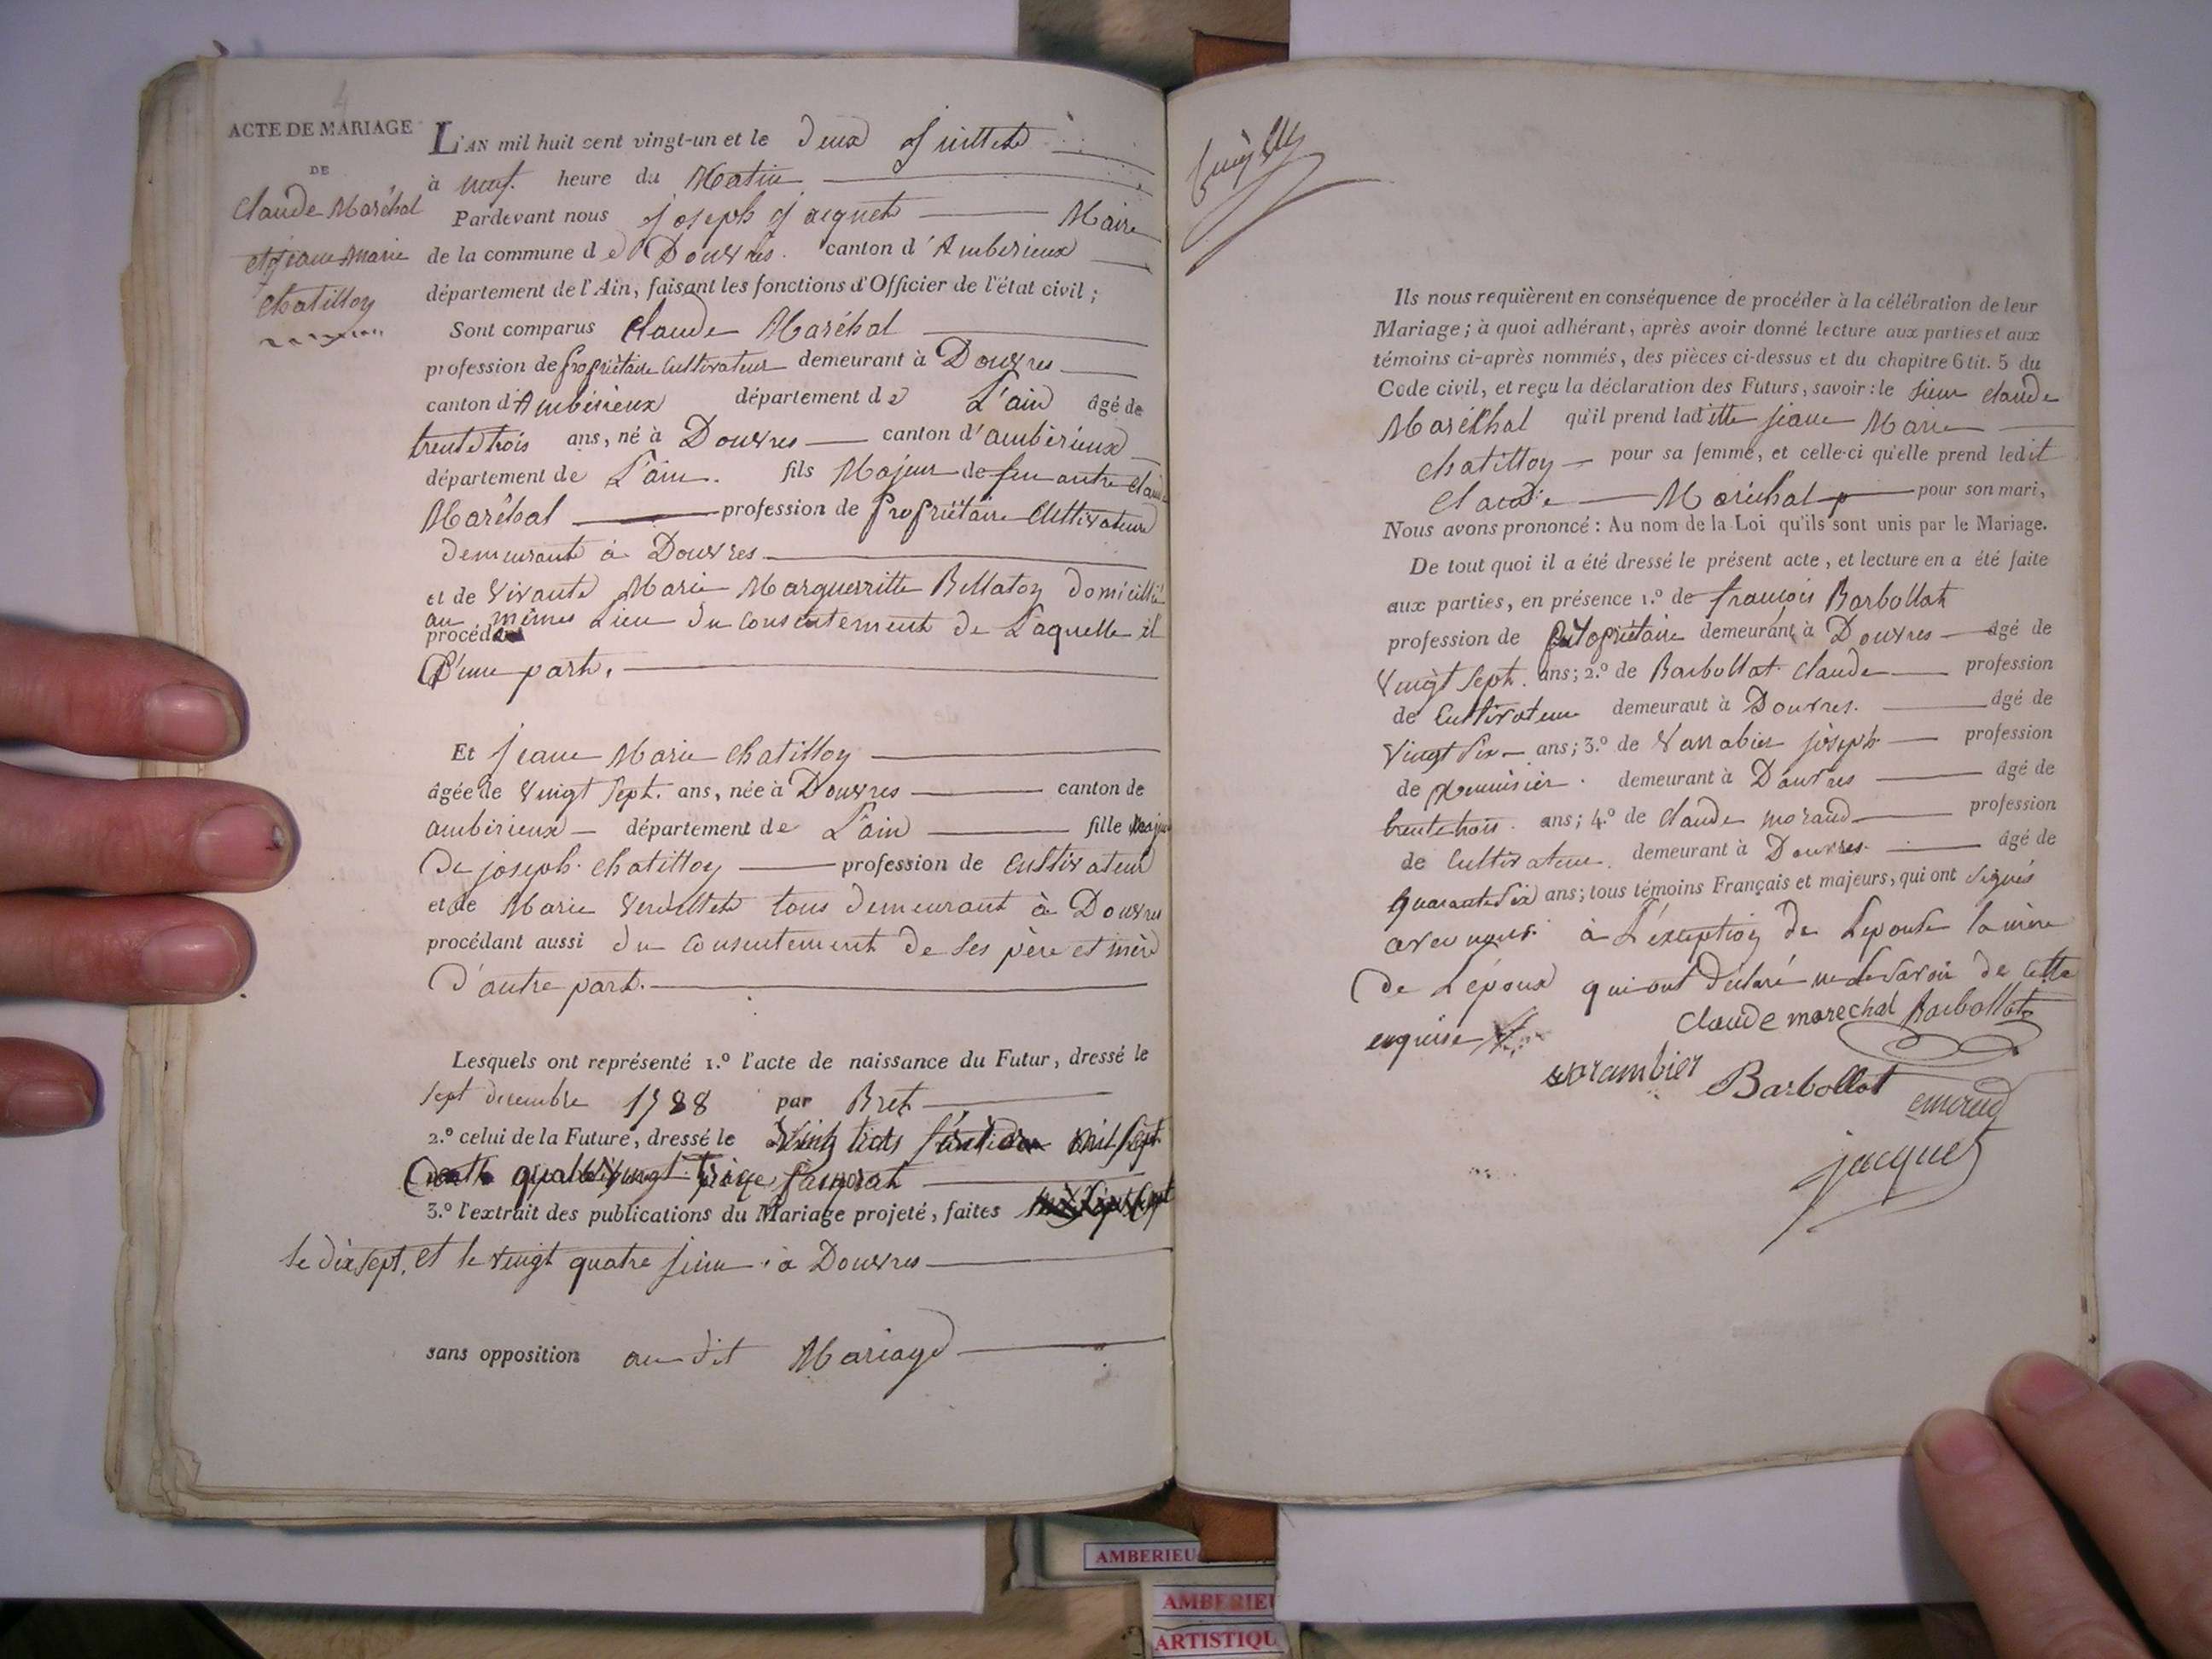 4
ACTE DE MARIAGE
DE
Claude Maréhal
et jeanne Marie
Chatillon
L'AN mil huit cent vingt-un et le Deux Juillet
à neuf. heure du Matin
Pardevant nous joseph jacquet Maire
de la commune de Douvres. canton d'Ambérieux
département de l'Ain, faisant les fonctions d'Officier de l'état civil;
Sont comparus Claude Maréhal
profession de propriétaire Cultivateur demeurant à Douvres
canton d'Ambérieux département de L'ain âgé de
trente trois ans, né à Douvres canton d'ambérieux
département de L'ain. fils Majeur de feu autre Claude
Maréhal profession de propriétaire Cultivateur
demeurant à Douvres
et de vivante Marie Marguerritte Bellaton domicillié
au mêmes Lieu du consentement de Laquelle il
procédant
D'une part.
Et jeanne Marie Chatillon
âgée de vingt sept. ans, née à Douvres canton de
ambérieux département de L'ain fille Majeur
De joseph Chatillon profession de Cultivateur
et de Marie tous demeurant à Douvres
procédant aussi du consentement de Ses père et mère
D'autre part.
Lesquels ont représenté 1.º l'acte de naissance du Futur, dressé le
sept decembre 1788 par Bret
2.º celui de la Future, dressé le mil sept
quatre vingt treize
3.º l'extrait des publications du Mariage projeté, faites
le dix sept. et le vingt quatre juin à Douvres
sans opposition au dit Mariage
Ils nous requièrent en conséquence de procéder à la célébration de leur
Mariage; à quoi adhérant, après avoir donné lecture aux parties et aux
témoins ci-après nommés, des pièces ci-dessus et du chapitre 6 tit. 5 du
Code civil, et reçu la déclaration des Futurs, savoir: le sieur Claude
Maréchal qu'il prend laditte jeanne Marie
Chatillon pour sa femme, et celle-ci qu'elle prend ledit
Claude Maréchal pour son mari,
Nous avons prononcé: Au nom de la Loi qu'ils sont unis par le Mariage.
De tout quoi il a été dressé le présent acte, et lecture en a été faite
aux parties, en présence 1.º de françois Barbollat
profession de propriétaire demeurant à Douvres âgé de
vingt sept. ans; 2.º de Barbollat Claude profession
de Cultivateur demeurant à Douvres. âgé de
vingt six ans; 3.º de Varrabier joseph profession
de menuisier. demeurant à Douvres âgé de
trente trois. ans; 4.º de Claude moraud profession
de Cultivateur. demeurant à Douvres âgé de
quarante six ans; tous témoins Français et majeurs, qui ont signés
avec nous. à L'exception de L'epouse la mère
de L'époux qui ont déclaré ne le savoir de cette
enquise
Claude marechal Barbollat
varambier Barbollat
jacquet